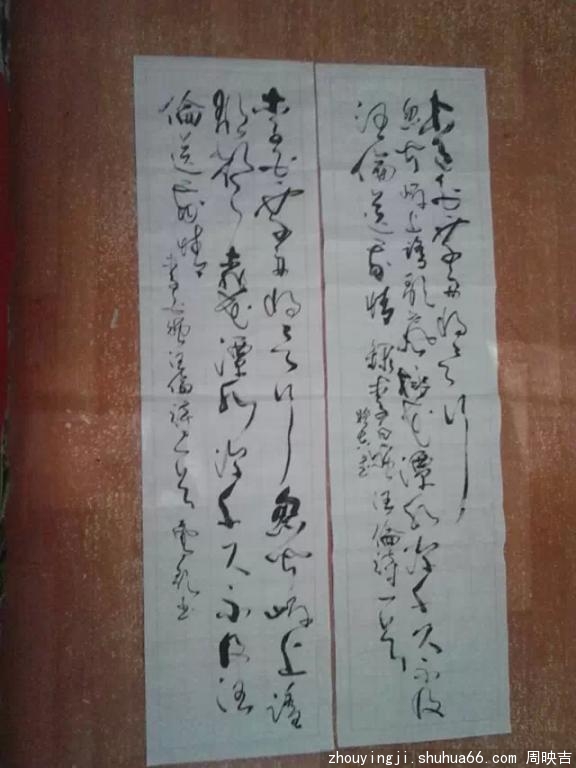 李白乘舟将欲行
忽闻岸上踏歌聲桃花潭水深千尺不及
汪倫送我情 錄李白贈汪倫詩一首
李白乘舟将欲行忽闻岸上踏
歌聲桃花潭水深千尺不及汪
倫送我情 李白贈汪倫詩一首 書
zhouyingji.shuhua66.com 周映吉